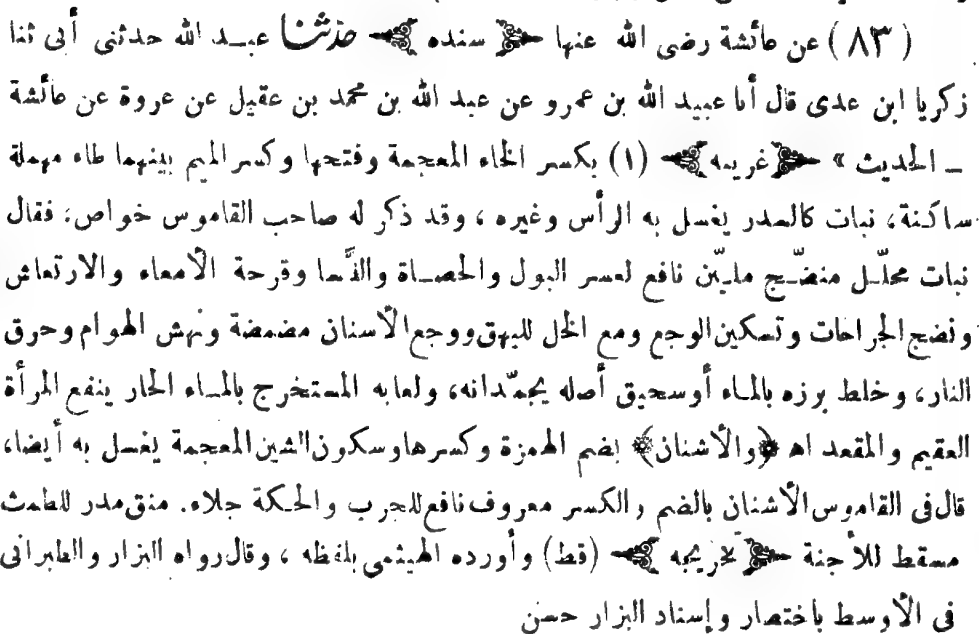 ( ٨٣ ) عن عائشة رضى الله عنها ﴿ سنده ﴾ حدثنا عبد الله حدثنى أبى ثنا
زكريا ابن عدى قال أنا عبيد الله بن عمرو عن عبد الله بن محمد بن عقيل عن عروة عن عائشة
ــ الحديث » ﴿ غريبه ﴾ (١) بكسر الخاء المعجمة وفتحها وكسر الميم بينهما طاء مهملة
ساكنة، نبات كالسدر يغسل به الرأس وغيره ، وقد ذكر له صاحب القاموس خواص، فقال
نبات محلّل منضّج مليّن نافع لعسر البول والحصاة والنَّسا وقرحة الأمعاء والارتعاش
ونضج الجراحات وتسكين الوجع ومع الخل للبهق ووجع الأسنان مضمضة ونهش الهوام وحرق
النار، وخلط بزره بالماء أو سحيق أصله يجمّدانه، ولعابه المستخرج بالماء الحار ينفع المرأة
العقيم والمقعد اهـ ﴿والأشنان﴾ بضم الهمزة وكسرها وسكون الشين المعجمة يغسل به أيضا،
قال فى القاموس الأشنان بالضم والكسر معروف نافع للجرب والحكة جلاء. منق مدر للطمث
مسقط للأجنة ﴿ تخريجه ﴾ (قط) وأورده الهيثمى بلفظه ، وقال رواه البزار والطبرانى
فى الأوسط باختصار وإسناد البزار حسن